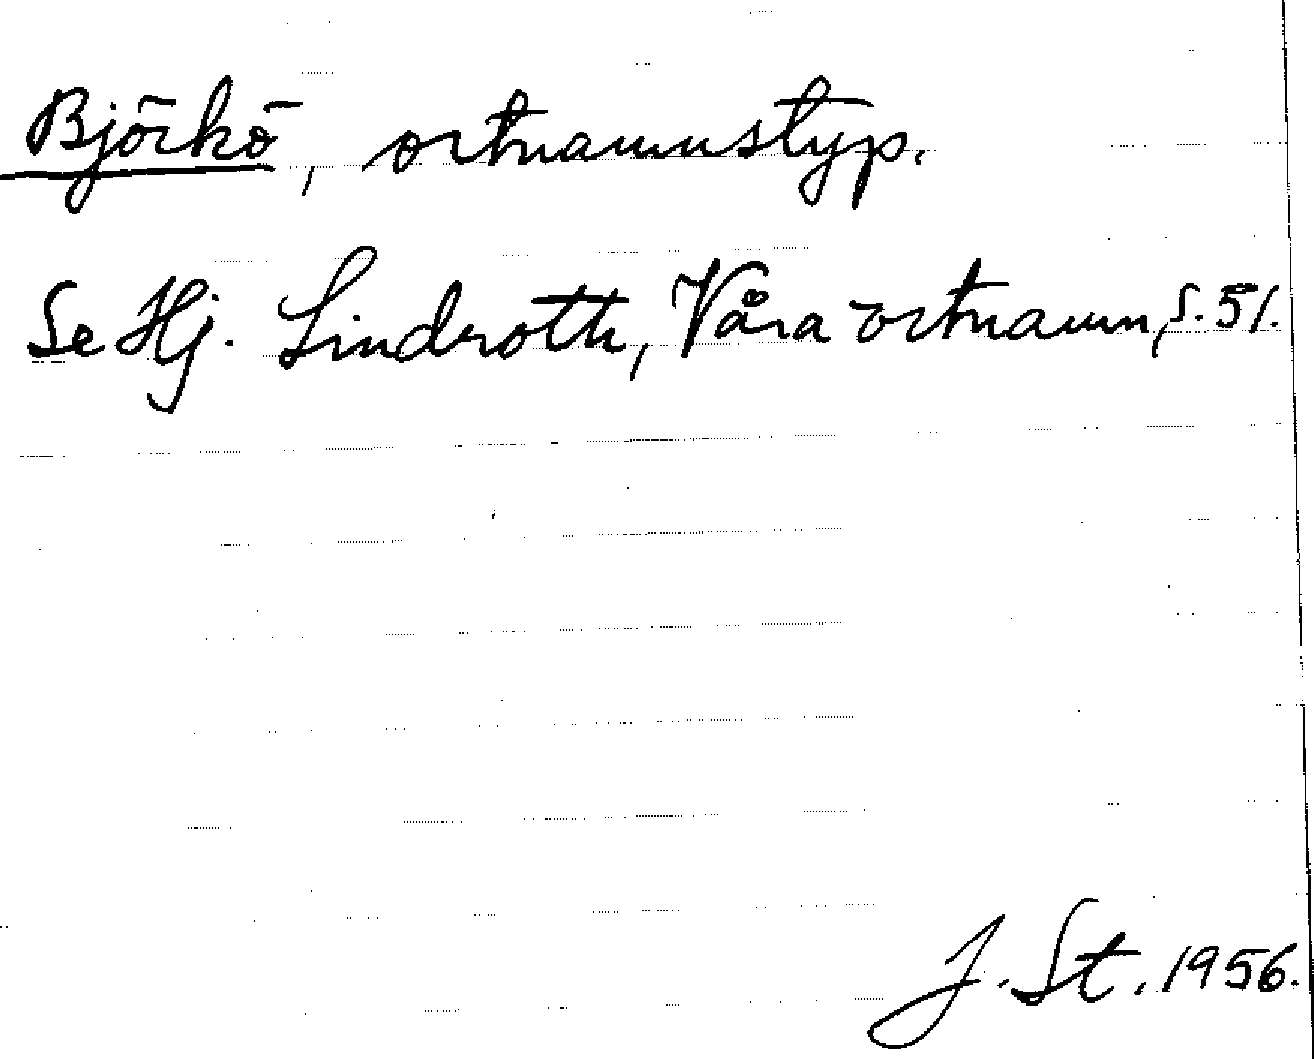 Björkö, ortnamnstyp.
Se Hj. Lindroth, Våra ortnamn, s. 51.
J. St. 1956.